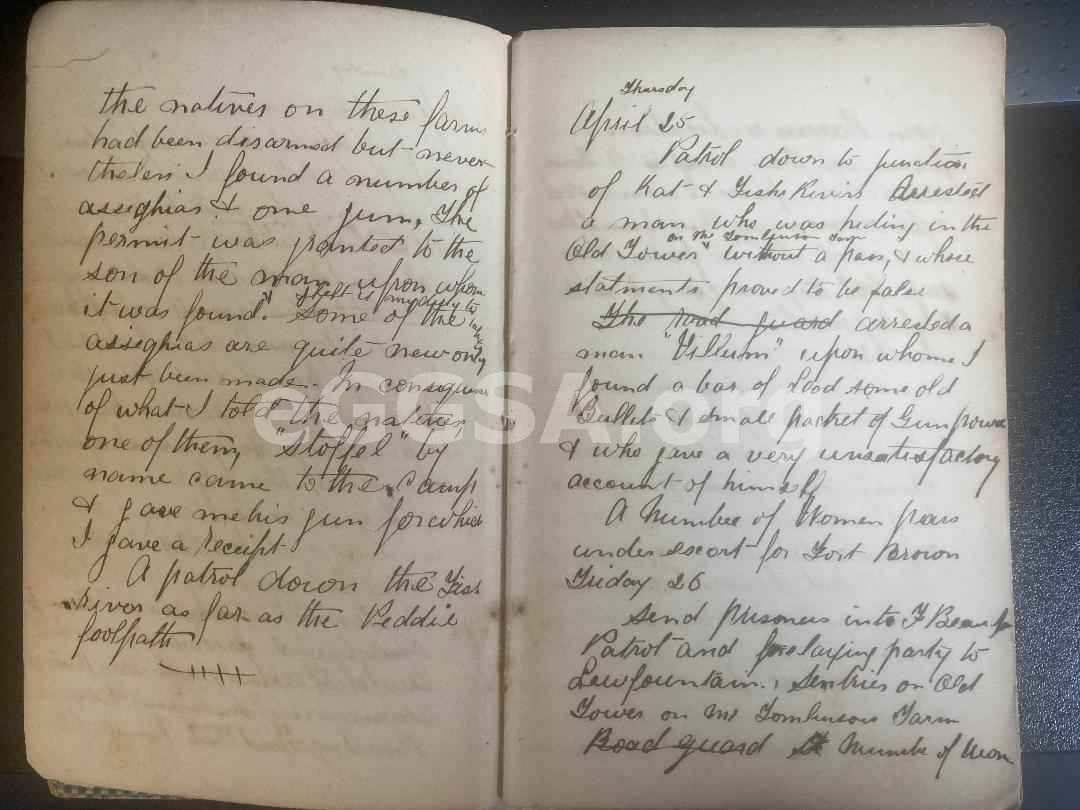 the natives on these farms
had been disarmed but never
theless I found a number of
asseghias & one gun, The
permit was granted to the
son of the man upon whom
it was found. I left it
Some of the
asseghias are quite new only
just been made. In consequence
of what I told the natives,
one of them, "Stoffel" by
name came to the Camp
& gave me his gun for which
I gave a receipt
A patrol down the Fish
river as far as the Peddie
footpath
Thursday
April 25
Patrol down to junction
of Kat & Fish Rivers Arrested
a man who was hiding in the
on Mr Tomlinson Farm
Old Tower without a pass, & whose
statments proved to be false
The road guard arrested a
man "Villum" upon whome I
found a bar of Lead some old
Bullets & small packet of Gun powder
& who give a very unsatisfactory
account of himself
A Number of Women pass
under escort for Fort Brown
Friday 26
Send prisoners into F Beaufort
Patrol and party to
Leeufountain., Sentries on Old
Tower on Mr Tomlinsons Farm
Road guard Number of Women
eGGSA.org